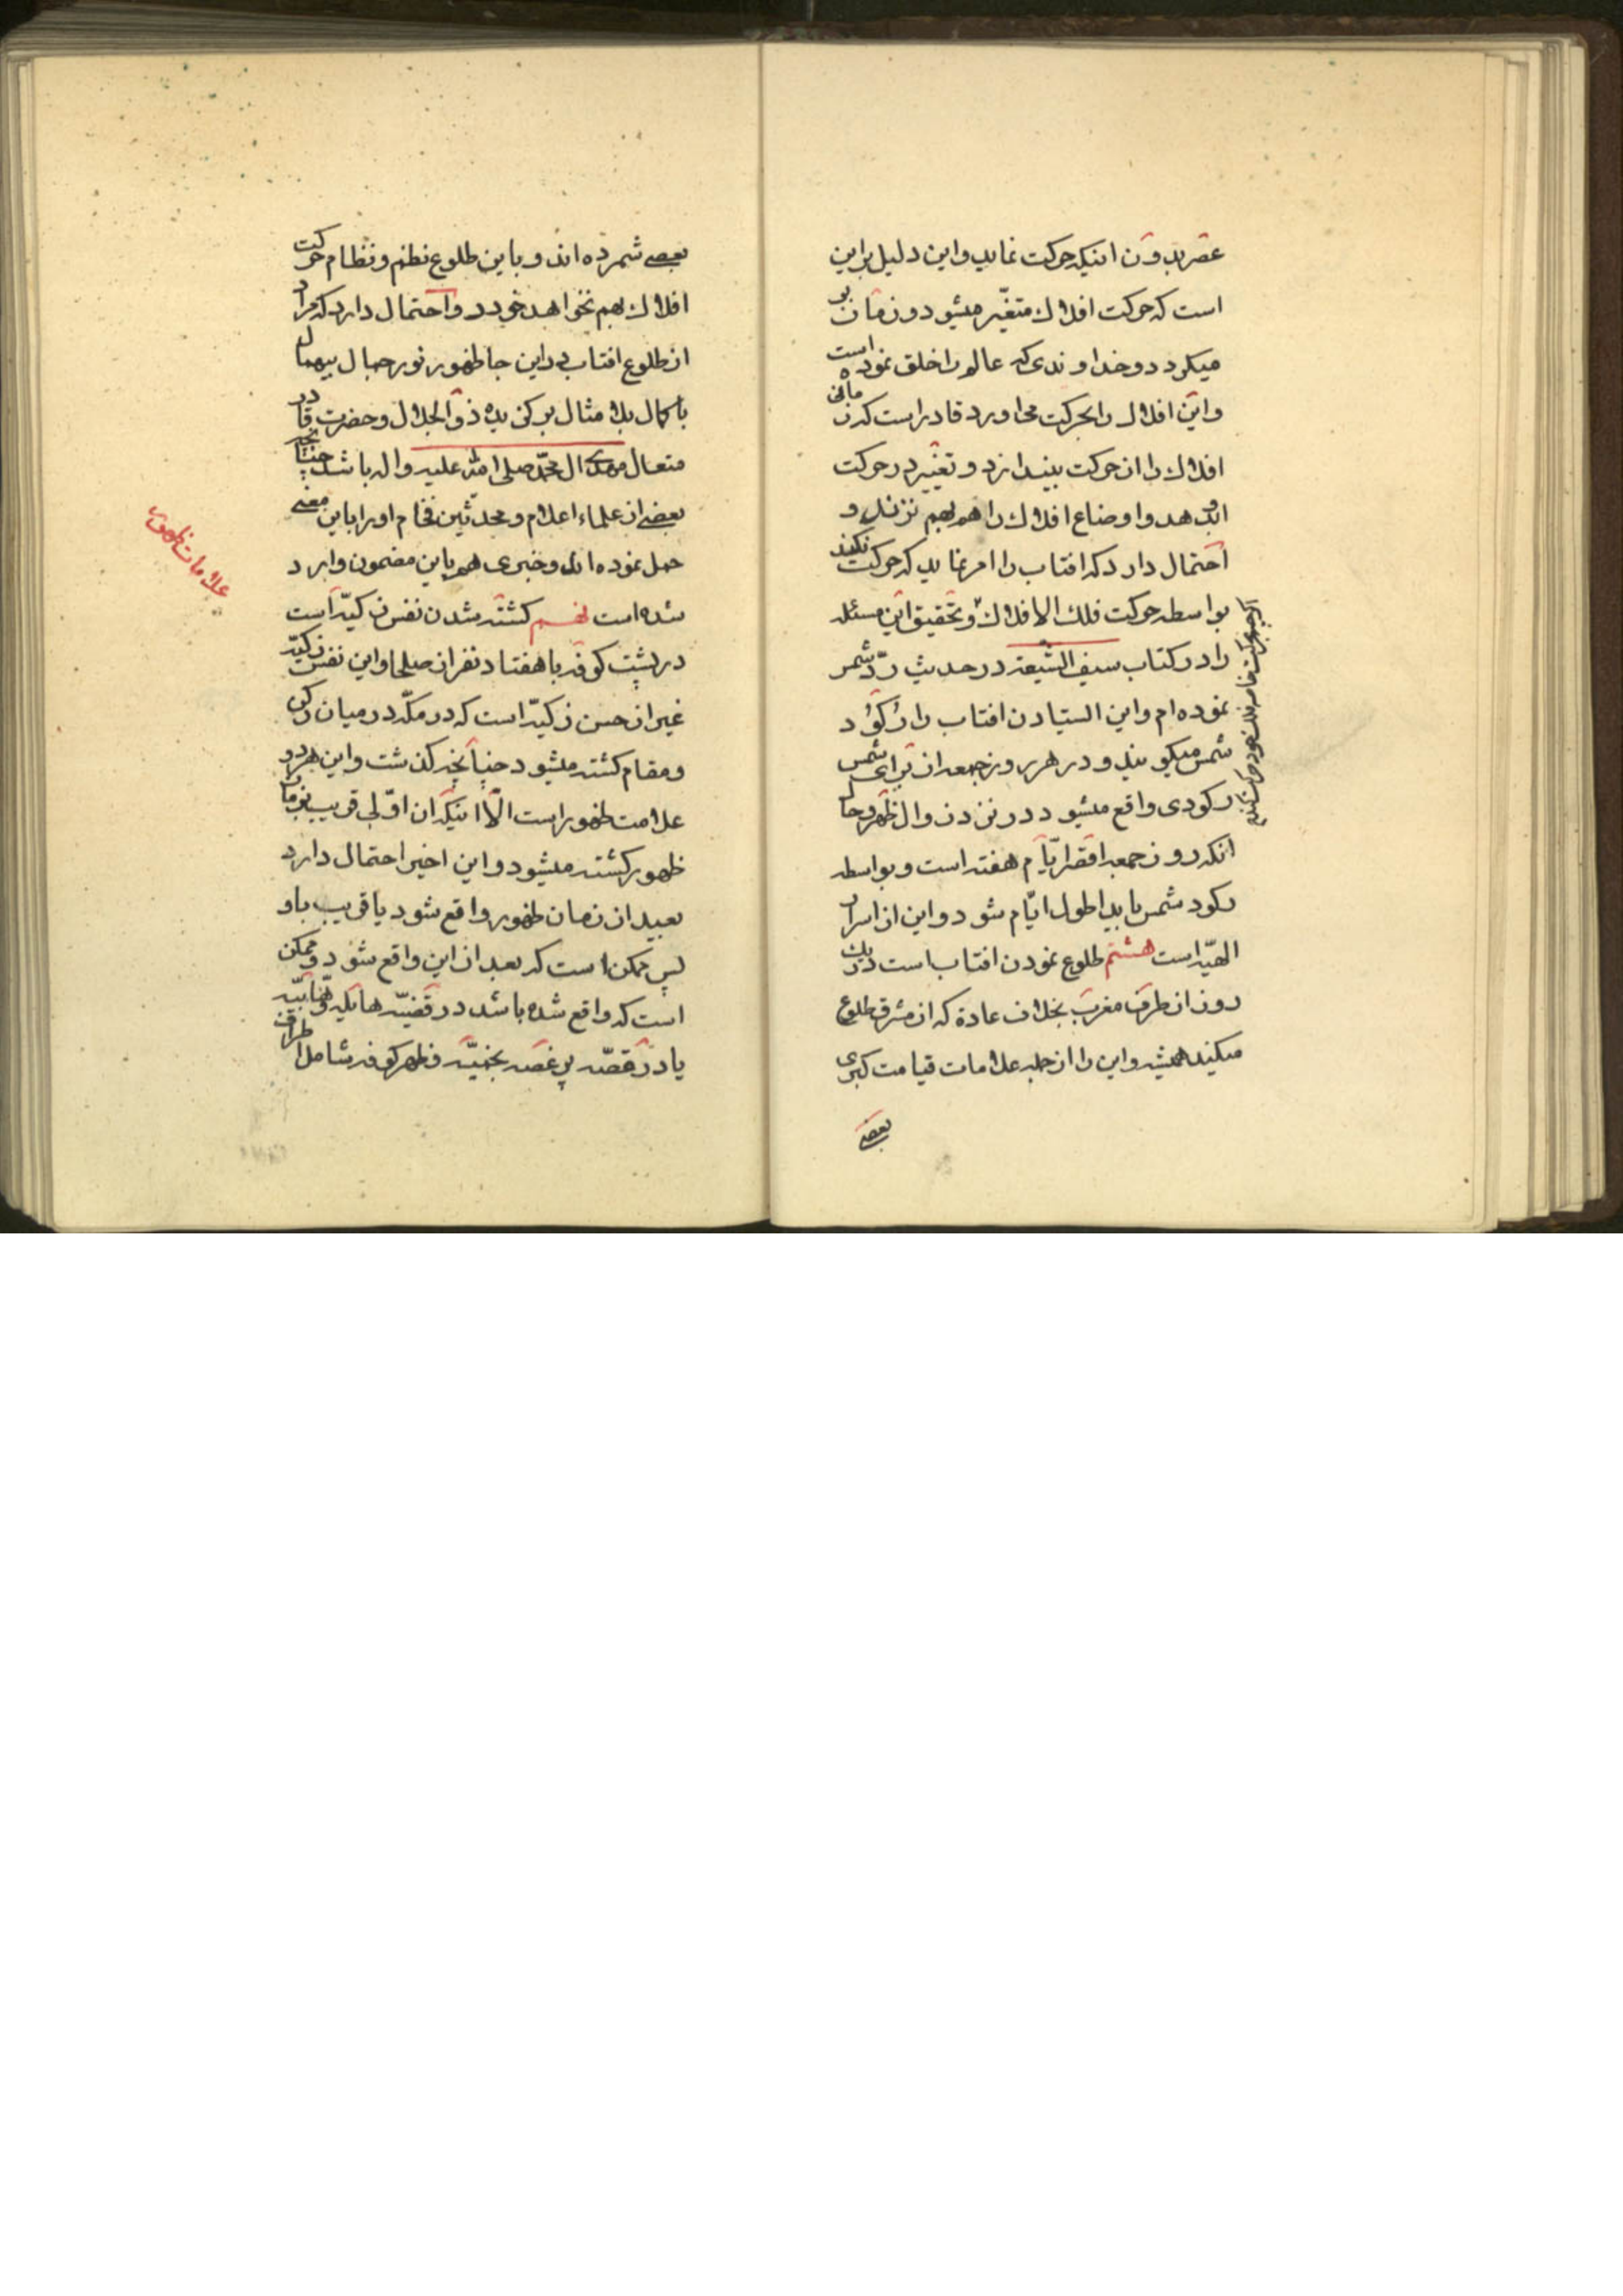 عصر بدون اینکه حرکت نماید و این دلیل براین
است که حرکت افلاک متغیّر میشود و زمان بر
میکردد و خداوندی که عالم را خلق نموده است
و این افلاک را بحرکت می اورد قادر است که زمانی
افلاک را از حرکت بیندازد و تغییر در حرکت
او بدهد و اوضاع افلاک را هم بهم نزند و
احتمال دارد که افتاب را امر نماید که حرکت نکند
بواسطه حرکت فلک الافلاک و تحقیق این مسئله
را در کتاب سیف الشیعة در حدیث ردّ شمس
نموده ام و این ایستادن افتاب را رکود
شمس میکویند و در هر روز جمعه از برای شمس
رکودی واقع میشود در نزد زوال ظهر و حال
انکه روز جمعه اقصر ایّام هفته است و بواسطه
رکود شمس باید اطول ایّام شود و این از اسرار
الهیّه است هشتم طلوع نمودن افتاب است در یک
روز از طرف مغرب بخلاف عادة که از مشرق طلوع
میکند همیشه و این را از جمله علامات قیامت کبری
بعضی
بعضی شمرده اند و باین طلوع نظم و نظام حرکت
افلاک بهم نخواهد خورد و احتمال دارد که مراد
از طلوع افتاب در این جا ظهور نور جمال بیهمال
با کمال بلا مثال برکزیده ذو الجلال و حضرت قادر
متعال مهدی ال محمّد صلی الله علیه و اله باشد چنانچه
بعضی از علماء اعلام و محدثین فخام او را باین معنی
حمل نموده اند و خبری هم باین مضمون وارد
شده است نهم کشته شدن نفس زکیّه است
در پشت کوفه با هفتاد نفر از صلحا و این نفس زکیّه
غیر از حسن زکیّه است که در مکّه در میان رکن
و مقام کشته میشود چنانچه کذشت و این هر دو
علامت ظهور است الّا اینکه ان اوّلی قریب بزمان
ظهور کشته میشود و این اخیر احتمال دارد
بعید از زمان ظهور واقع شود یا قریب باو
پس ممکن است که بعد از این واقع شود و ممکن
است که واقع شده باشد در قضیّه هایله وهّابیّه
یا در قصّه پر غصه نجفیّه و ظهر کوفه شامل اطراف
علامات ظهور